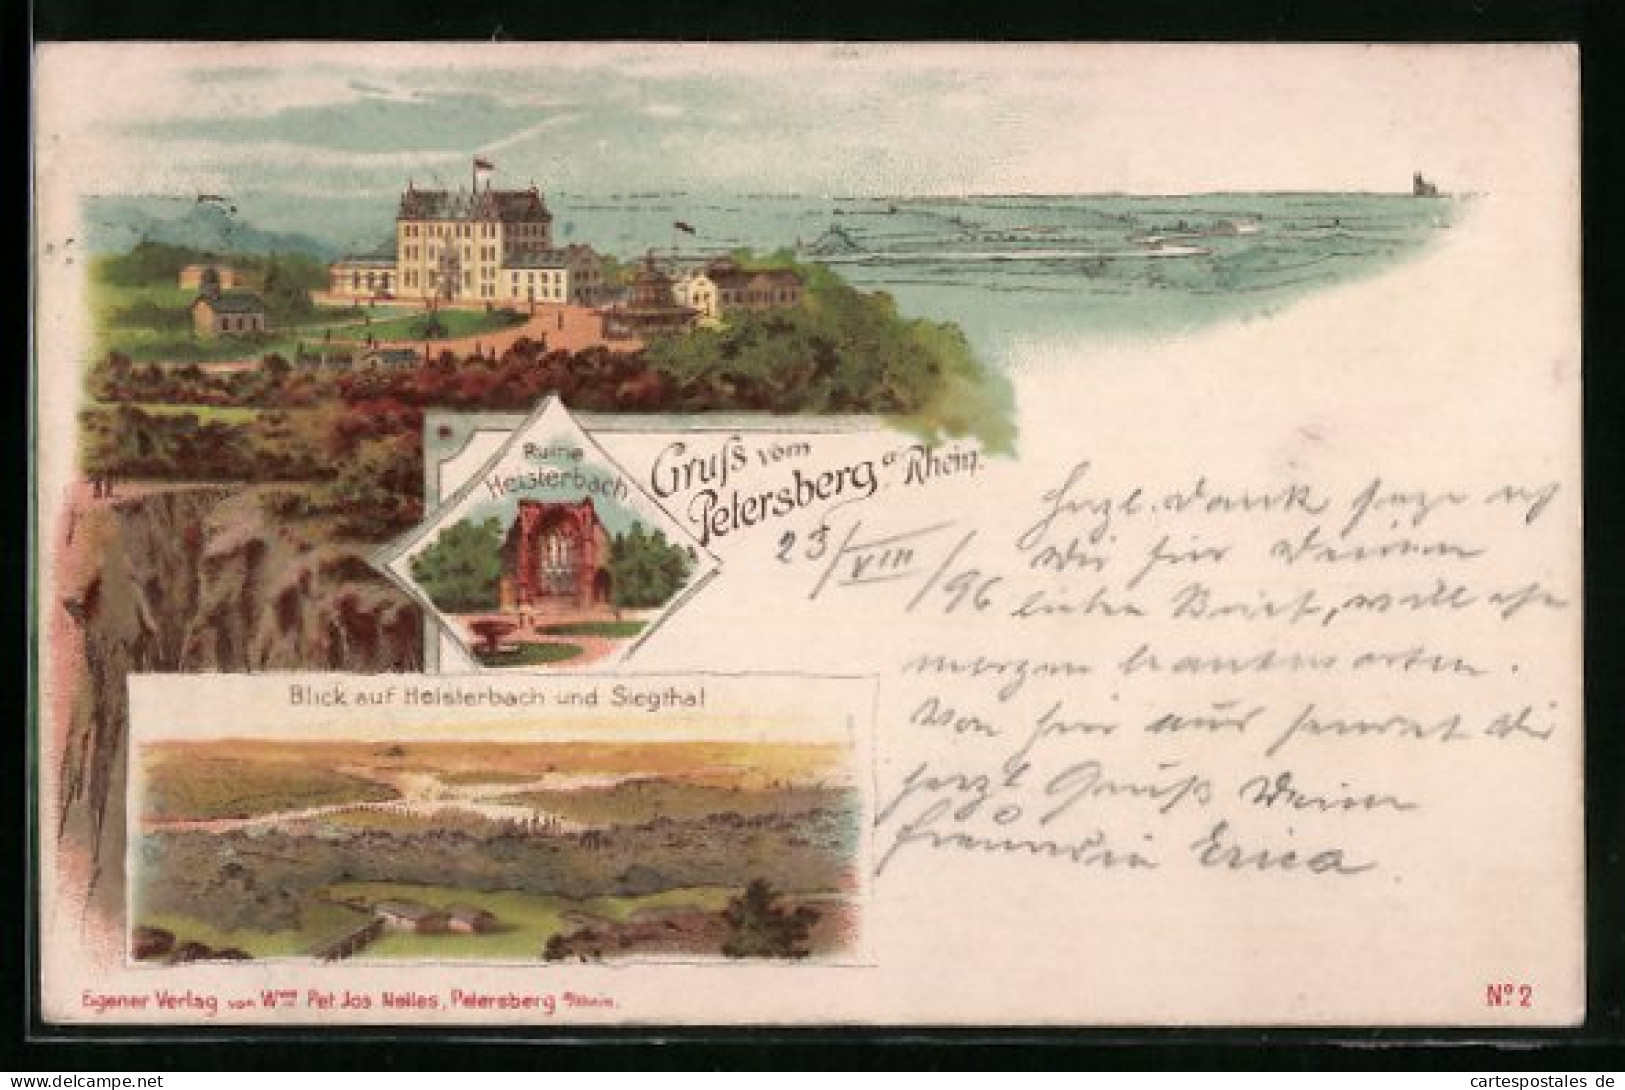 Ruine
Heisterbach
Gruß vom
Petersberg a/Rhein.
23/VIII/96
Herzl. Dank sage ich
Dir für Deinen
lieben Brief, will ihn
morgen beantworten.
Von hier aus sendet dir
herzl Gruß Deine
Freundin Erica.
Blick auf Heisterbach und Siegthal
Eigener Verlag von Wwe Pet Jos Nelles, Petersberg a/Rhein.
No 2
cartespostales de